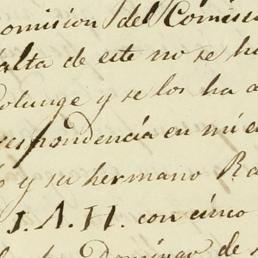 omision del Comisa
falta de este no se h
Polunge y se los ha a
respondencia en mi e
y su hermano Ra
J.A.H. con cinco
Domingo de